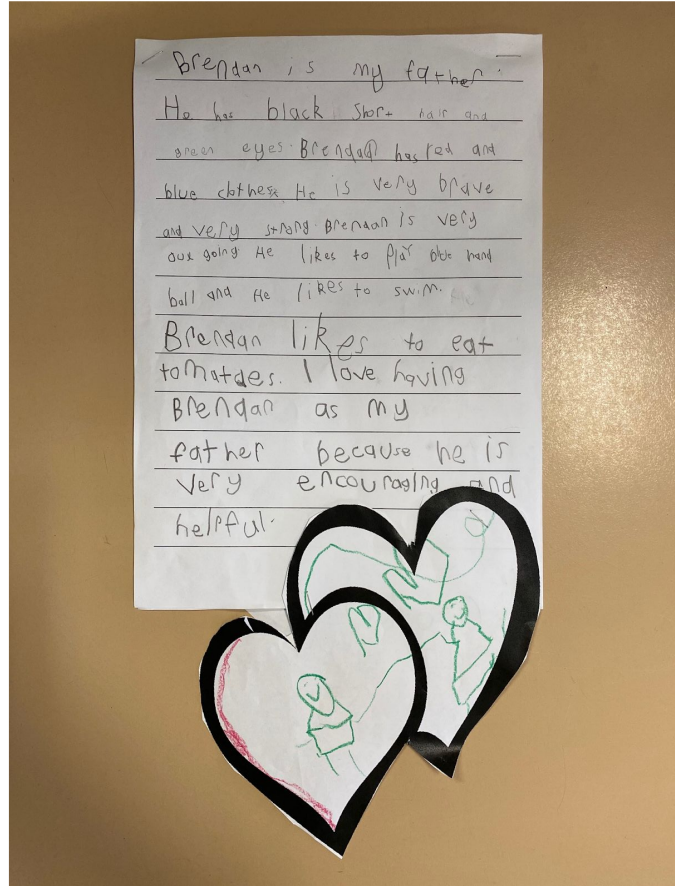 Brendan is my father.
He has black short hair and
green eyes. Brendan has red and
blue clothes. He is very brave
and very strong. Brendan is very
out going He likes to play blue hand
ball and He likes to swim.
Brendan likes to eat
tomatdes. I love having
Brendan as my
father because he is
very encouraging and
helpful.